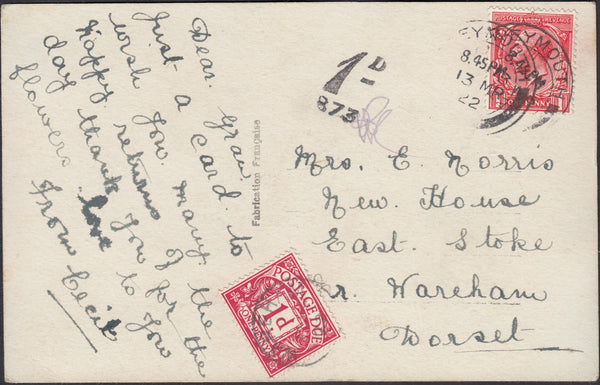 Dear Gran
Just a card to
wish you many
Happy returns of the
day thank you for the
flowers love to you
from Cecil
Fabrication Française
1D
873
POSTAGE
ONE PENNY
YMOUTH
8.45PM
13 MR
22
Mrs. E. Norris
New House
East Stoke
r. Wareham
Dorset
POSTAGE DUE
1D
ONE PENNY